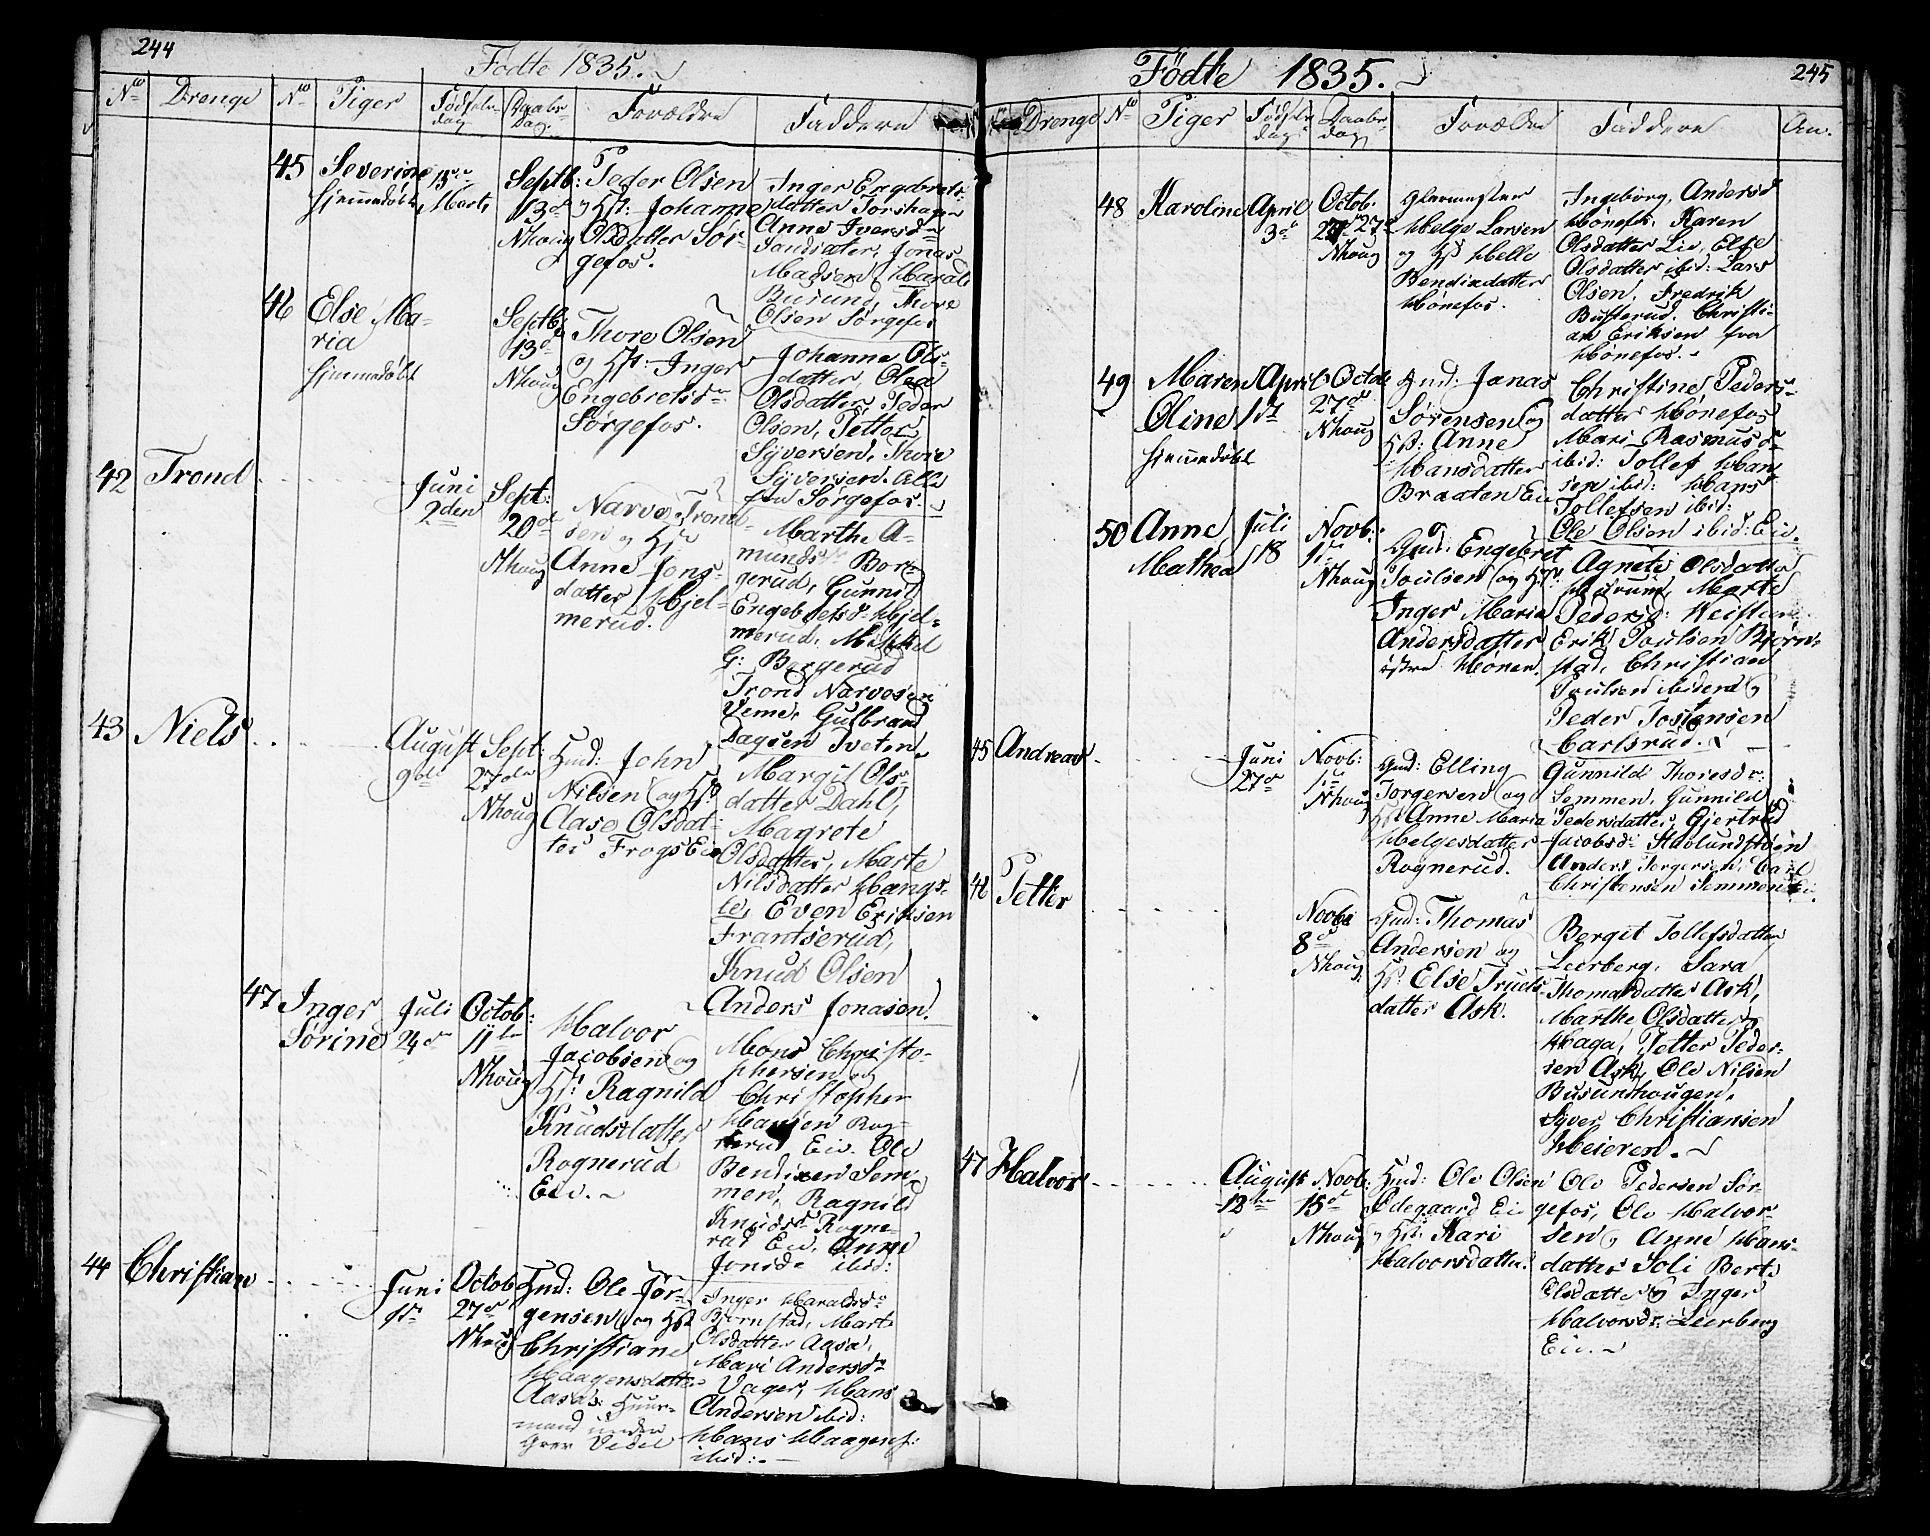 244
Fødte 1835.
No Drenge No Piger Fødselsdag Daabsdag Forældre Faddere
45 Severine
Hjemmedøbt
15de
Marts
Septb:
13de
Nhoug
Peder Olsen
og Hst: Johanne
Olsdatter Sør-
gefos.
Inger Engebrets-
datter
Anne Iversd.
Jonas
Madsen
Busund, Thore
Olsen Sørgefos
46 Else Ma-
ria
hjemmedøbt
Septb:
13de
Nhoug
Thore Olsen
og Hst: Inger
Engebretsd.
Sørgefos.
Johanne Ols-
datter, Olea
Olsdatter, Peder
Olsen, Petter
Syversen, Thore
Syversen. Alle
fra Sørgefos.
42 Trond
Juni
2den
Sept:
20de
Nhoug
Narve Trond-
sen og Hst
Anne Jons-
datter Hjel-
merud.
Marthe A-
munds Bor-
gerud, Gunnil
Engebretsd. Hjel-
merud. Mikkel
G: Borgerud
Trond Narvesen
Veme, Gulbrand
Dagsen Tveten.
43 Niels
August
9de
Sept:
27de
Nhoug
Hmd: John
Nilsen og Hst
Aase Olsdat-
ter Frogs Eie
Margit Ols-
datter Dahl,
Magrete
Olsdatter, Marte
Nilsdatter Hængs-
le, Even Eriksen
Frantserud,
Knud Olsen
Anders Jonasen.
47 Inger
Sørine
Juli
24de
Octob:
11te
Nhoug
Halvor
Jacobsen og
Hst Ragnild
Knudsdatter
Rognerud
Eie.
Mons Christo-
phersen og
Christopher
Hansen Rog-
nerud Eie. Ole
Bendixen Sem-
men, Ragnild
Knudsd. Rogne-
rud Eie, Anne
Jonsd. ibid:
44 Christian
Juni
Octob
27de
Nhoug
Hmd: Ole Jør-
gensen og Hst
Christiane
Haagensdatter
Aasa: Huus-
mand under
Grev Vedel
Inger Haraldsd.
Bjørnstad, Marte
Olsdatter Aasa,
Mari Andersd.
Vager, Hans
Andersen ibid:
Hans Haagens:
ibid:
245
Fødte 1835.
No Drenge No Piger Fødselsdag Daabsdag Forældre Faddere An.
48 Karoline
April
3de
Octob.
27de
Nhoug
Glarmester
Helge Larsen
og Hst Helle
Bendixdatter
Hønefos.
Ingeborg Andersd.
Hønefos, Karen
Olsdatter Lie, Else
Olsdatter ibid: Lars
Olsen, Fredrik
Busterud, Christi-
an Eriksen fra
Hønefos.
49 Maren
Oline
hjemmedøbt
April
17
Octob
27de
Nhoug
Hmd: Jonas
Sørensen og
Hst: Anne
Hansdatter
Braaten Eie
Christine Peders-
datter Hønefos,
Mari Rasmusd.
ibid: Tollef Han
sen ibid: Hans
Tollefsen ibid:
Ole Olsen ibid: Eie.
50 Anne
Mathea
Juli
18
Novb:
1ste
Nhoug
Gmd: Engebret
Poulsen og Hst.
Inger Maria
Andersdatter
østre Hønen.
Agnete Olsdatter
Marte
Pedersd:
Erik Poulsen Bjørn-
stad, Christian
Poulsen ibidem og
Peder Tostensen
Carlsrud.
45 Andreas
Juni
27de
Novb:
1ste
Nhoug
Gmd: Elling
Torgersen og
Hst Anne Maria
Helgesdatter
Rognerud.
Gunnild Thoresdr:
Semmen, Gunnild
Pedersdatter, Gjertrud
Jacobsd.
Anders Torgersen, Carl
Christensen Semmen
46 Petter
Novbr
8de
Nhoug
Gmd: Thomas
Andersen og
Hst Else Truels-
datter Ask.
Bergit Tollefsdatter
Leerberg, Sara
Thomasdatter Ask,
Marthe Olsdatter
Haga, Petter Peder-
sen Ask, Ole Nilsen
Busundhougen,
Syver Christiansen
Heieren.
47 Halvor
August
12te
Novb:
15de
Nhoug
Hmd: Ole Olsen
Ødegaard Eie
og Hst. Kari
Halvorsdatter.
Ole Pedersen Sør-
gefos, Ole Halvor-
sen, Anne Hans-
datter Soli Berte
Olsdatter og Inger
Halvorsdr. Leerberg
Eie.